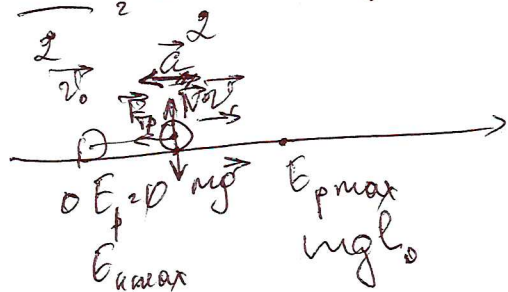 2
2 2
v₀ a
Fтр N v
0 Eₚ=0 mg Eₚ max
Eₖ max mgl₀